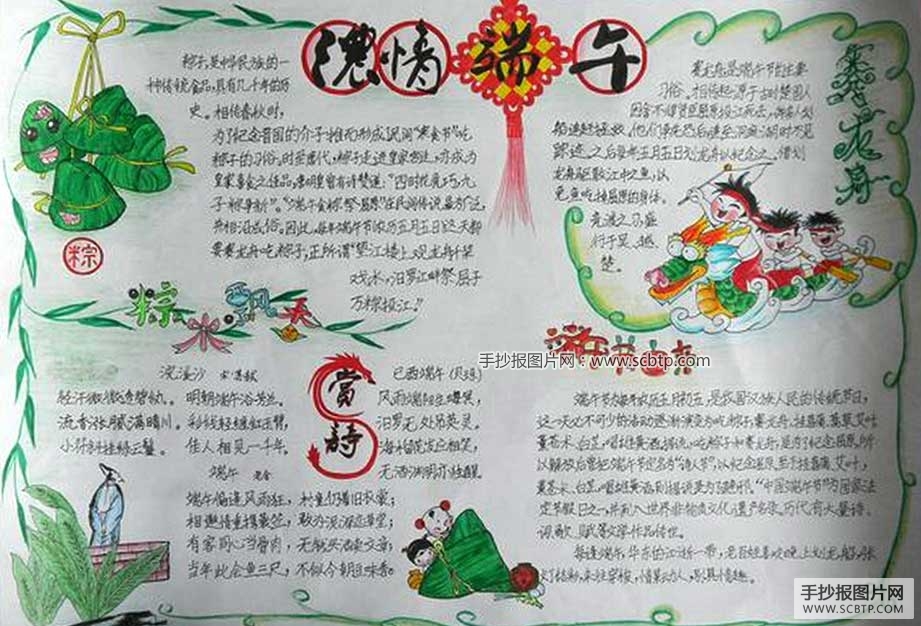 浓情端午
粽子是中华民族的一
种传统食品,具有几千年的历
史。相传春秋时,
为了纪念晋国的介子推而形成民间“寒食节”吃
粽子的习俗,时至唐代,粽子走进皇家宫廷,亦成为
皇家喜食之佳品,唐明皇曾有诗赞道:“四时花竞巧,九
子粽争新”。“端午食粽祭屈原”在民间传说最为广泛,
并相沿品俗。因此,每年端午节农历五月五日这天都
要赛龙舟吃粽子,正所谓“望江楼上观龙舟千桨
戏水,汨罗江畔祭屈子
万粽投江。”
粽
粽飘天
赛龙舟
赛龙舟是端午节的主要
习俗。相传起源于古时楚国人
因舍不得贤臣屈原投江死去,许多人划
船追赶拯救。他们争先恐后追至洞庭湖时不见
踪迹。之后每年五月五日划龙舟以纪念之。借划
龙舟驱散江中之鱼,以
免鱼吃掉屈原的身体。
竞渡之习盛
行于吴、越、
楚。
手抄报图片网:www.scbtp.com
浣溪沙
轻汗微微透碧纨。 明朝端午浴芳兰。
流香涨腻满晴川。 彩线轻缠红玉臂,
小符斜挂绿云鬟。 佳人相见一千年。
诗
己酉端午(贝琼)
风雨端阳生晦冥,
汨罗无处吊英灵。
海榴花发应相笑,
无酒渊明亦独醒
端午 老舍
端午偏逢风雨狂, 村童仍着旧衣裳;
相邀情重携蓑笠, 敢为泥深恋草堂;
有客同心当骨肉, 无钱买酒卖文章;
当年此会鱼三尺, 不似今朝豆味香。
端午节为每年农历五月初五,是我国汉族人民的传统节日,
这一天必不可少的活动逐渐演变为吃粽子,赛龙舟,挂菖蒲、蒿草、艾叶
薰苍术、白芷,喝雄黄酒。据说,吃粽子和赛龙舟,是为了纪念屈原,所
以解放后曾把端午节定名为“诗人节”,以纪念屈原。至于挂菖蒲、艾叶,
薰苍术、白芷,喝雄黄酒,则据说是为了避邪。“中国端午节”为国家法
定节假日之一,并列入世界非物质文化遗产名录。历代有大量诗、
词、歌、赋等文学作品传世。
手抄报图片网
WWW.SCBTP.COM